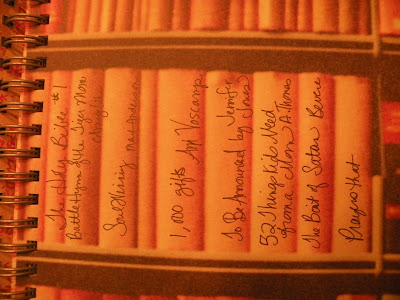 The Holy Bible #1
Battle Hymn of the Tiger Mom
Soul Keeping
1,000 gifts Ann Voscamp
To Be Announced by Jennifer
Jones
52 Things Kids Need
from a Mom A. Thomas
The Bait of Satan Bevere
Prayers that